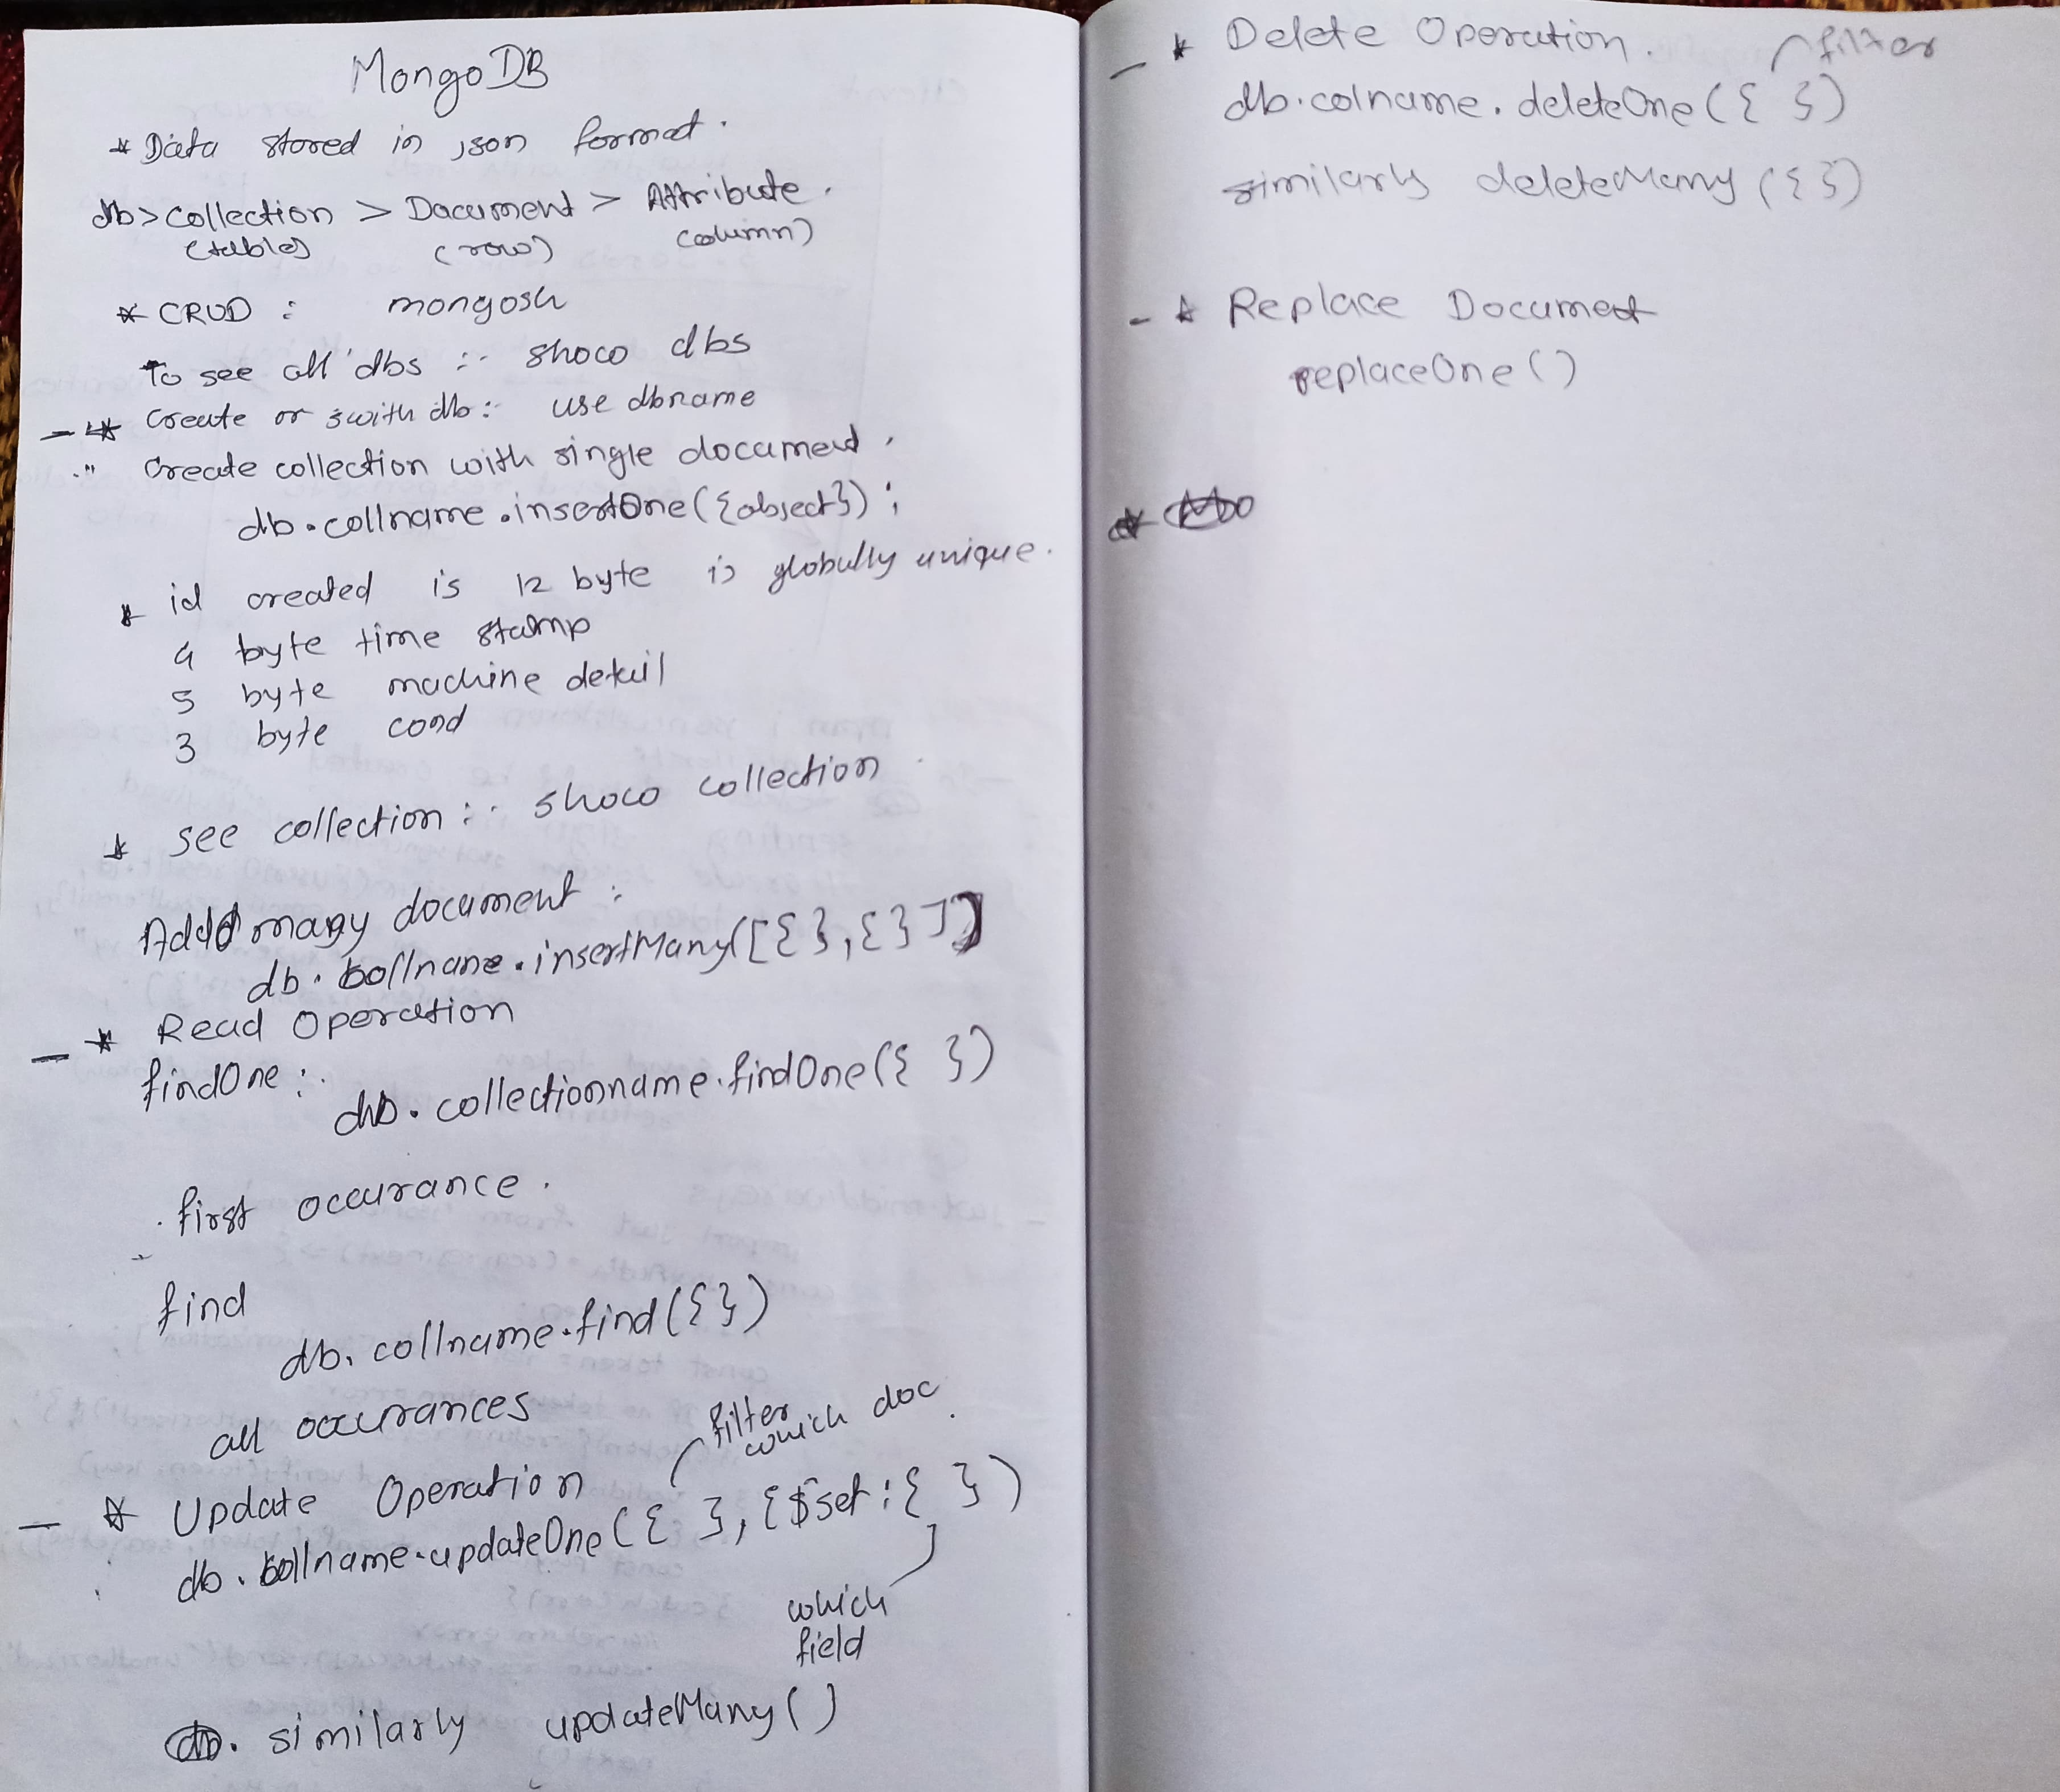 MongoDB
* Data stored in json format.
db > collection > Document > Attribute.
(table) (row) (column)
* CRUD : mongosh
To see all dbs :- show dbs
- * Create or swith db :- use dbname
" Create collection with single document.
db.collname.insertOne({object});
* id created is 12 byte is globally unique.
4 byte time stamp
5 byte machine detail
3 byte
* see collection :- show collection
Add many document :
db.collname.insertMany([{ }, { }])
- * Read Operation
findOne :-
db.collectionname.findOne({ })
first occurance.
find
db.collname.find({})
all occurances
filter which doc
- * Update Operation
db.collname.updateOne({ }, {$set:{ })
which field
similarly updateMany()
- * Delete Operation.
filter
db.colname.deleteOne({ })
similarly deleteMany({})
- * Replace Document
replaceOne()